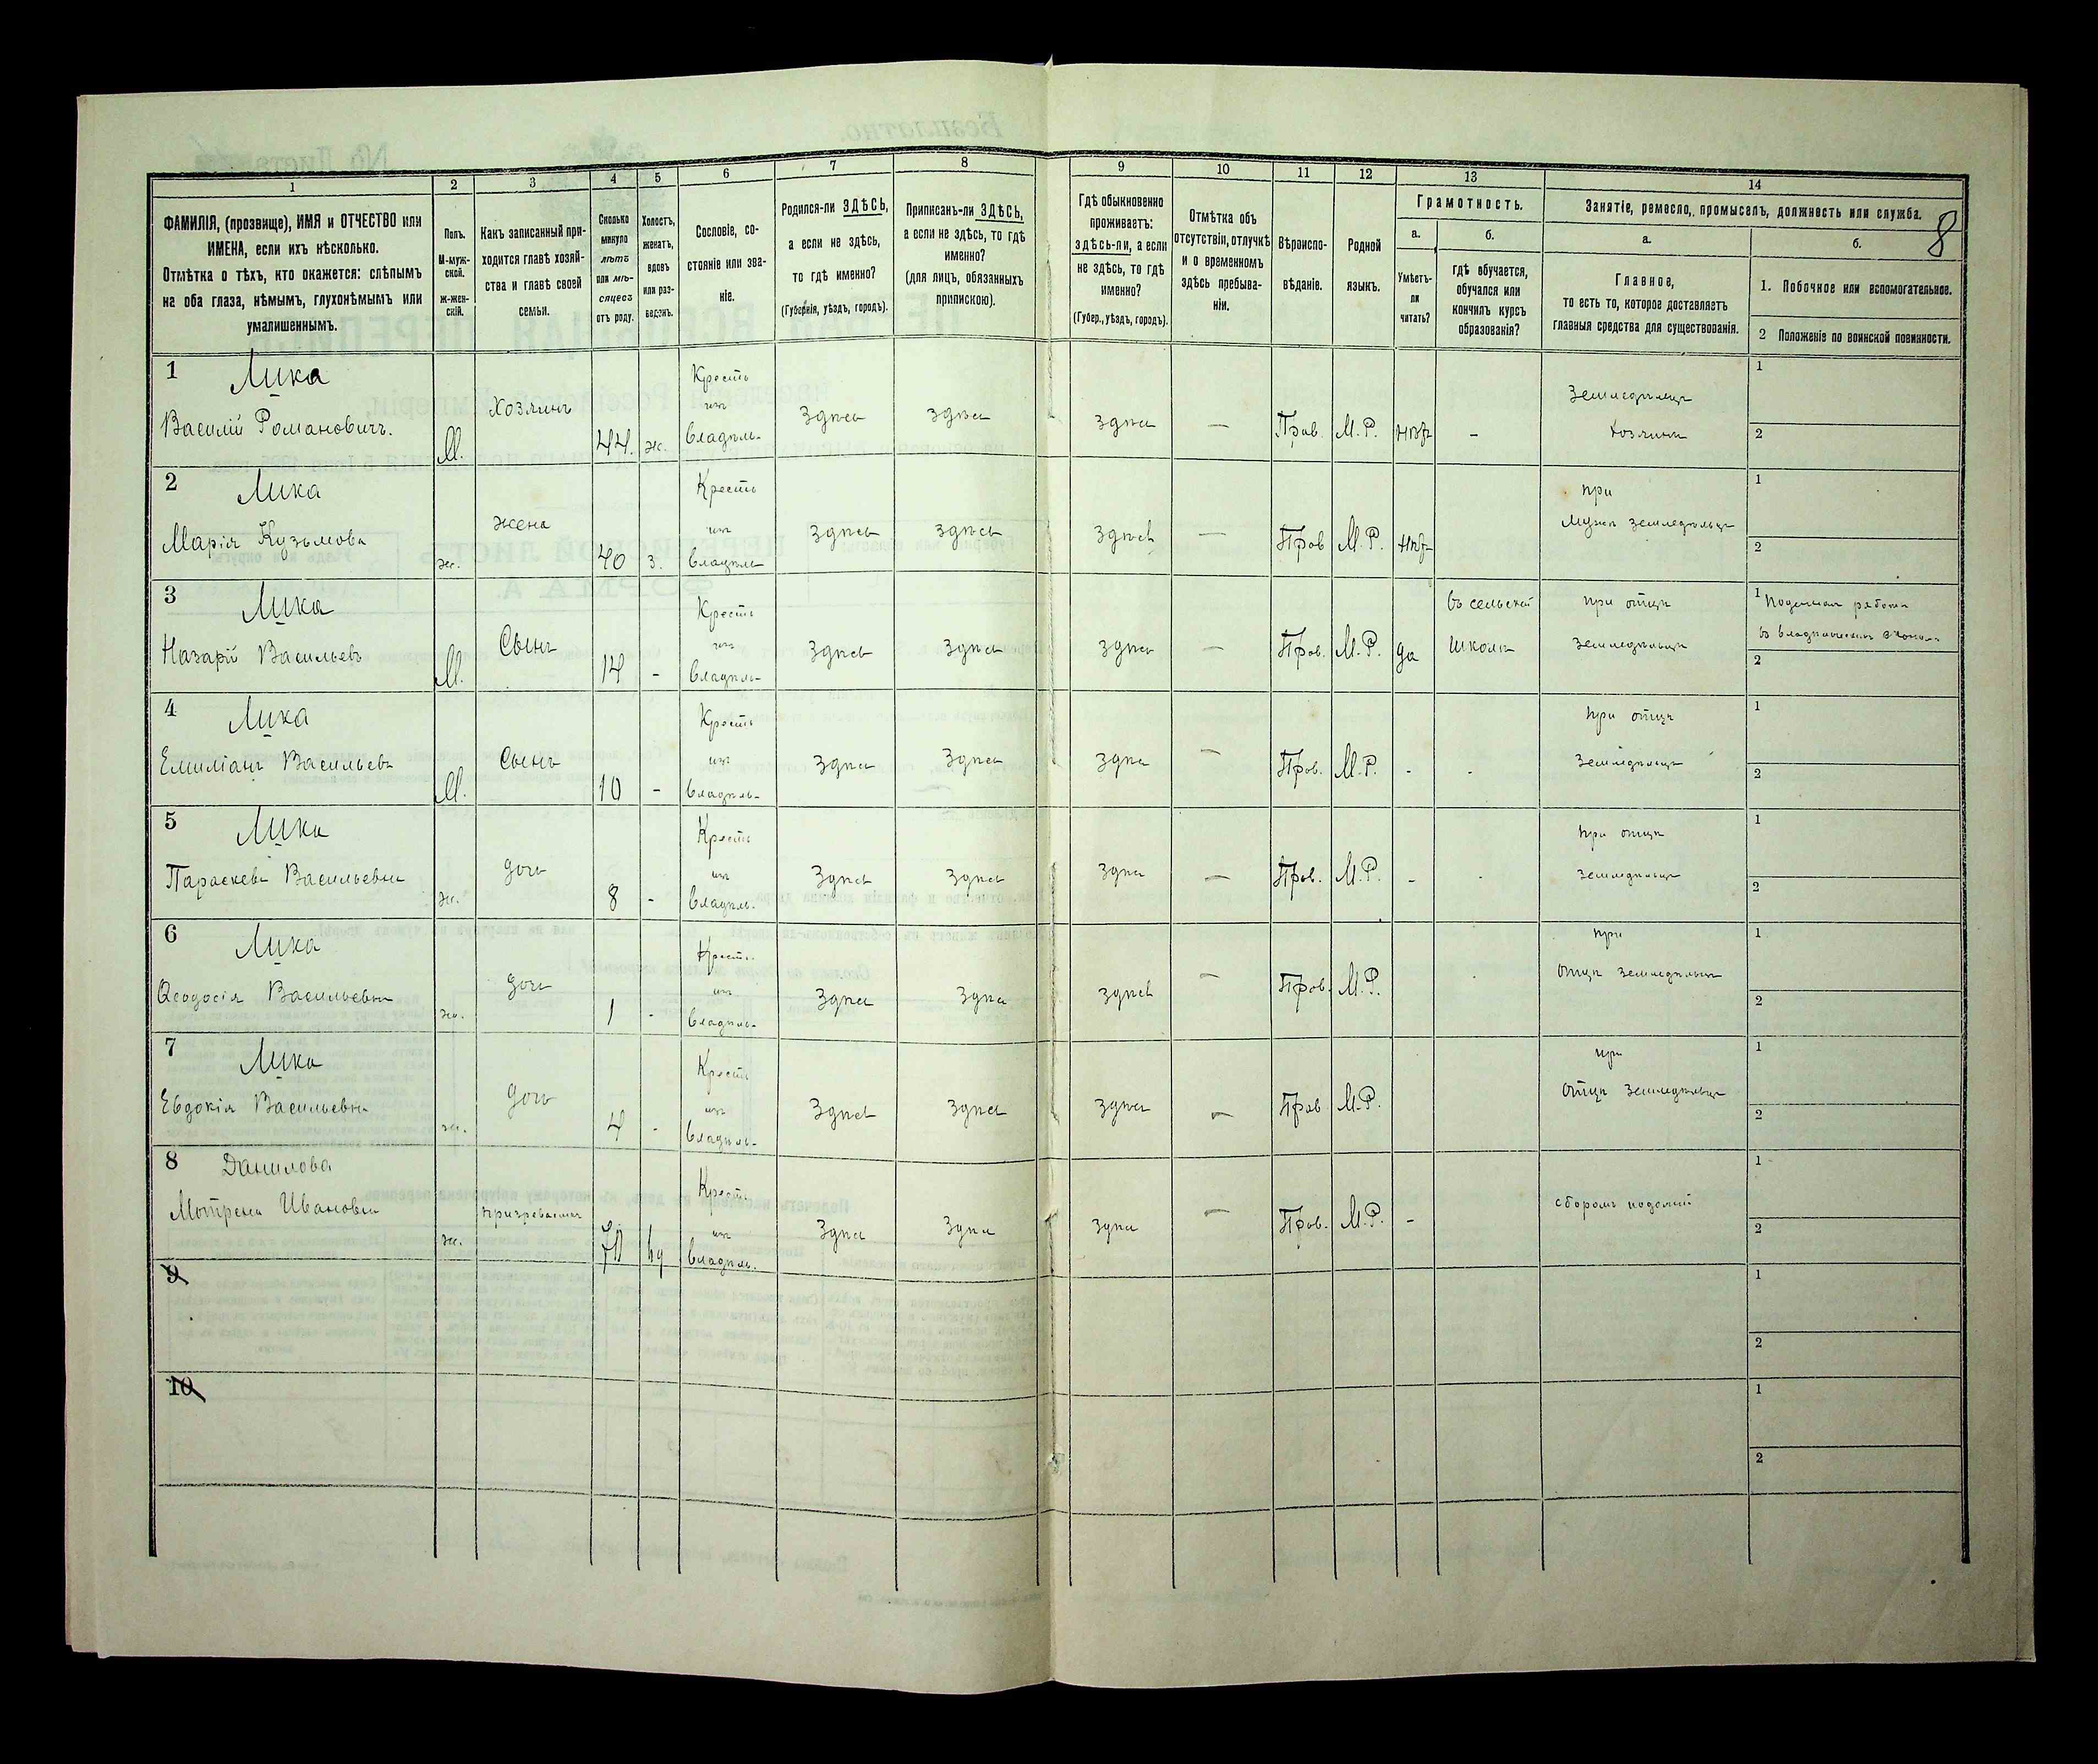 1
2
3
4
5
6
7
8
9
10
11
12
13
14
ФАМИЛІЯ, (прозвище), ИМЯ и ОТЧЕСТВО или
ИМЕНА, если ихъ нѣсколько.
Отмѣтка о тѣхъ, кто окажется: слѣпымъ
на оба глаза, нѣмымъ, глухонѣмымъ или
умалишеннымъ.
Полъ.
М-муж-
ской.
ж-жен-
скій.
Какъ записанный при-
ходится главѣ хозяй-
ства и главѣ своей
семьи.
Сколько
минуло
лѣтъ
или мѣ-
сяцевъ
отъ роду.
Холостъ,
женатъ,
вдовъ
или раз-
веденъ.
Сословіе, со-
стояніе или зва-
ніе.
Родился-ли ЗДѢСЬ,
а если не здѣсь,
то гдѣ именно?
(Губернія, уѣздъ, городъ).
Приписанъ-ли ЗДѢСЬ,
а если не здѣсь, то гдѣ
именно?
(для лицъ, обязанныхъ
припискою).
Гдѣ обыкновенно
проживаетъ:
здѣсь-ли, а если
не здѣсь, то гдѣ
именно?
(Губер., уѣздъ, городъ).
Отмѣтка объ
отсутствіи, отлучкѣ
и о временномъ
здѣсь пребыва-
ніи.
Вѣроиспо-
вѣданіе.
Родной
языкъ.
Грамотность.
а.
Умѣетъ-
ли
читать?
б.
гдѣ обучается,
обучался или
кончилъ курсъ
образованія?
Занятіе, ремесло, промыселъ, должность или служба.
8
а.
Главное,
то есть то, которое доставляетъ
главныя средства для существованія.
б.
1. Побочное или вспомогательное.
2 Положеніе по воинской повинности.
1 Лика
Василій Романовичъ.
М.
Хозяинъ
44.
ж.
Кресть
изъ
владѣль-
Здѣсь
здѣсь
здѣсь
—
Прав.
М.Р.
нѣт
-
Земледѣлецъ
хозяинъ
1
2
2 Лика
Марія Кузьмова
ж.
жена
40
з.
Кресть
изъ
владѣль
здѣсь
здѣсь
здѣсь
—
Прав
М.Р.
нѣт
при
мужѣ земледѣльцѣ
1
2
3 Лика
Назарій Васильевъ
М.
Сынъ
14
-
Кресть
изъ
владѣль-
здѣсь
здѣсь
здѣсь
—
Прав.
М.Р.
да
въ сельской
школѣ
при отцѣ
земледѣльцѣ
1
2
4 Лика
Емиліанъ Васильевъ
М.
Сынъ
10
-
Кресть
изъ
владѣль-
здѣсь
здѣсь
здѣсь
—
Прав.
М.Р.
-
-
при отцѣ
земледѣльцѣ
1
2
5 Лика
Параскева Васильевна
ж.
дочь
8
-
Кресть
изъ
владѣль.
здѣсь
здѣсь
здѣсь
—
Прав.
М.Р.
-
-
при отцѣ
земледѣльцѣ
1
2
6 Лика
Ѳеодосія Васильевна
ж.
дочь
1
-
Кресть.
изъ
владѣль-
здѣсь
здѣсь
здѣсь
—
Прав.
М.Р.
при
отцѣ земледѣльцѣ
1
2
7 Лика
Евдокія Васильевна
ж.
дочь
4
-
Кресть
изъ
владѣль-
здѣсь
здѣсь
здѣсь
—
Прав
М.Р.
при
отцѣ земледѣльцѣ
1
2
8 Данилова
Мотрена Ивановна
ж.
70
вд
Кресть
изъ
владѣль.
здѣсь
здѣсь
здѣсь
—
Прав.
М.Р.
-
сборомъ
1
2
9
1
2
10
1
2